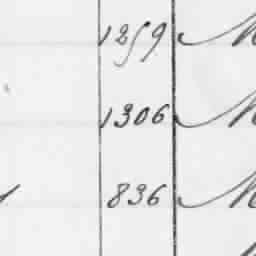 1259
1306
836